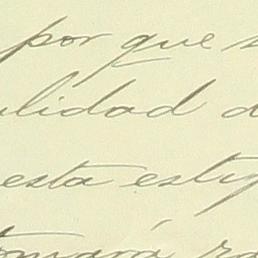 por que s
lidad d
esta esty
tomará ra